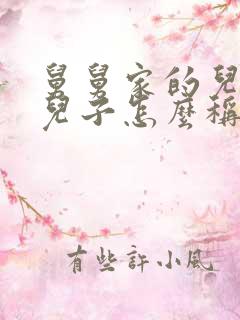 舅舅家的兒
兒子怎麼稱
有些許小風